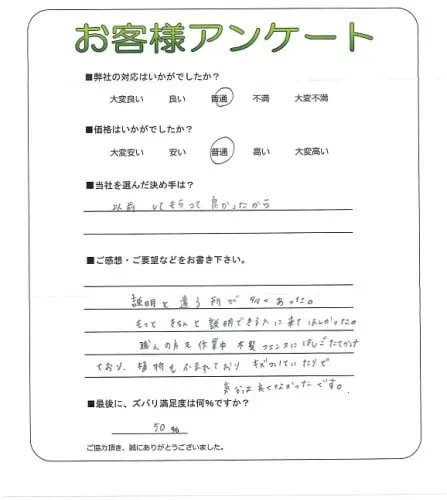 お客様アンケート
■弊社の対応はいかがでしたか？
大変良い　良い　普通　不満　大変不満
■価格はいかがでしたか？
大変安い　安い　普通　高い　大変高い
■当社を選んだ決め手は？
以前 してもらって 良かったから
■ご感想・ご要望などをお書き下さい。
説明と違う所が多々あった。
もっと きちんと説明できる人に来てほしかった。
職人の方も作業中 木製フェンスにはしごたてかけ
ており、植物もふまれており キズついていたりで
気分は良くなかったです。
■最後に、ズバリ満足度は何%ですか？
50 %
ご協力頂き、誠にありがとうございました。